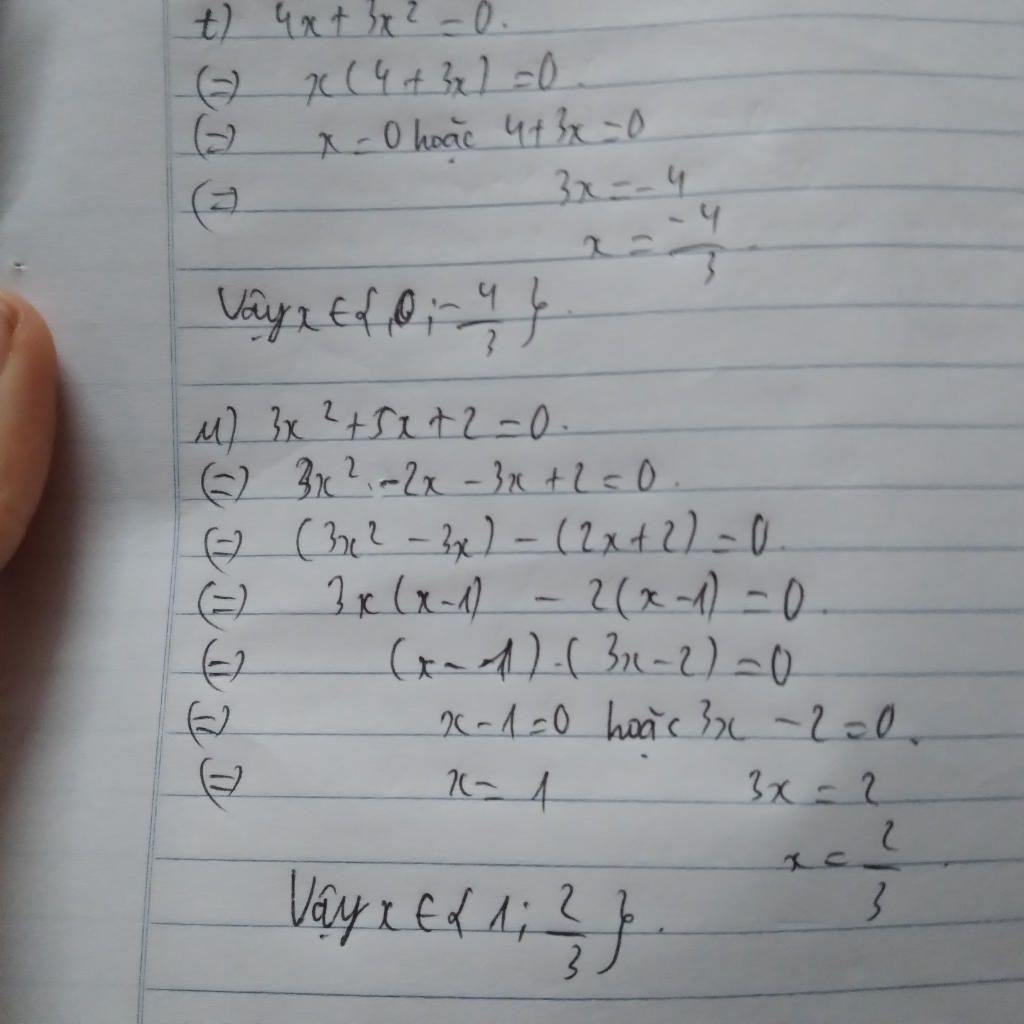 t) 4x + 3x² = 0.
(=) x(4 + 3x) = 0.
(=) x = 0 hoặc 4 + 3x = 0
(=) 3x = -4
x = -4/3.
Vậy x ∈ {0; -4/3}.
u) 3x² + 5x + 2 = 0.
(=) 3x² - 2x - 3x + 2 = 0.
(=) (3x² - 3x) - (2x + 2) = 0.
(=) 3x(x - 1) - 2(x - 1) = 0.
(=) (x - 1).(3x - 2) = 0
(=) x - 1 = 0 hoặc 3x - 2 = 0.
(=) x = 1 3x = 2
x = 2/3.
Vậy x ∈ {1; 2/3}.